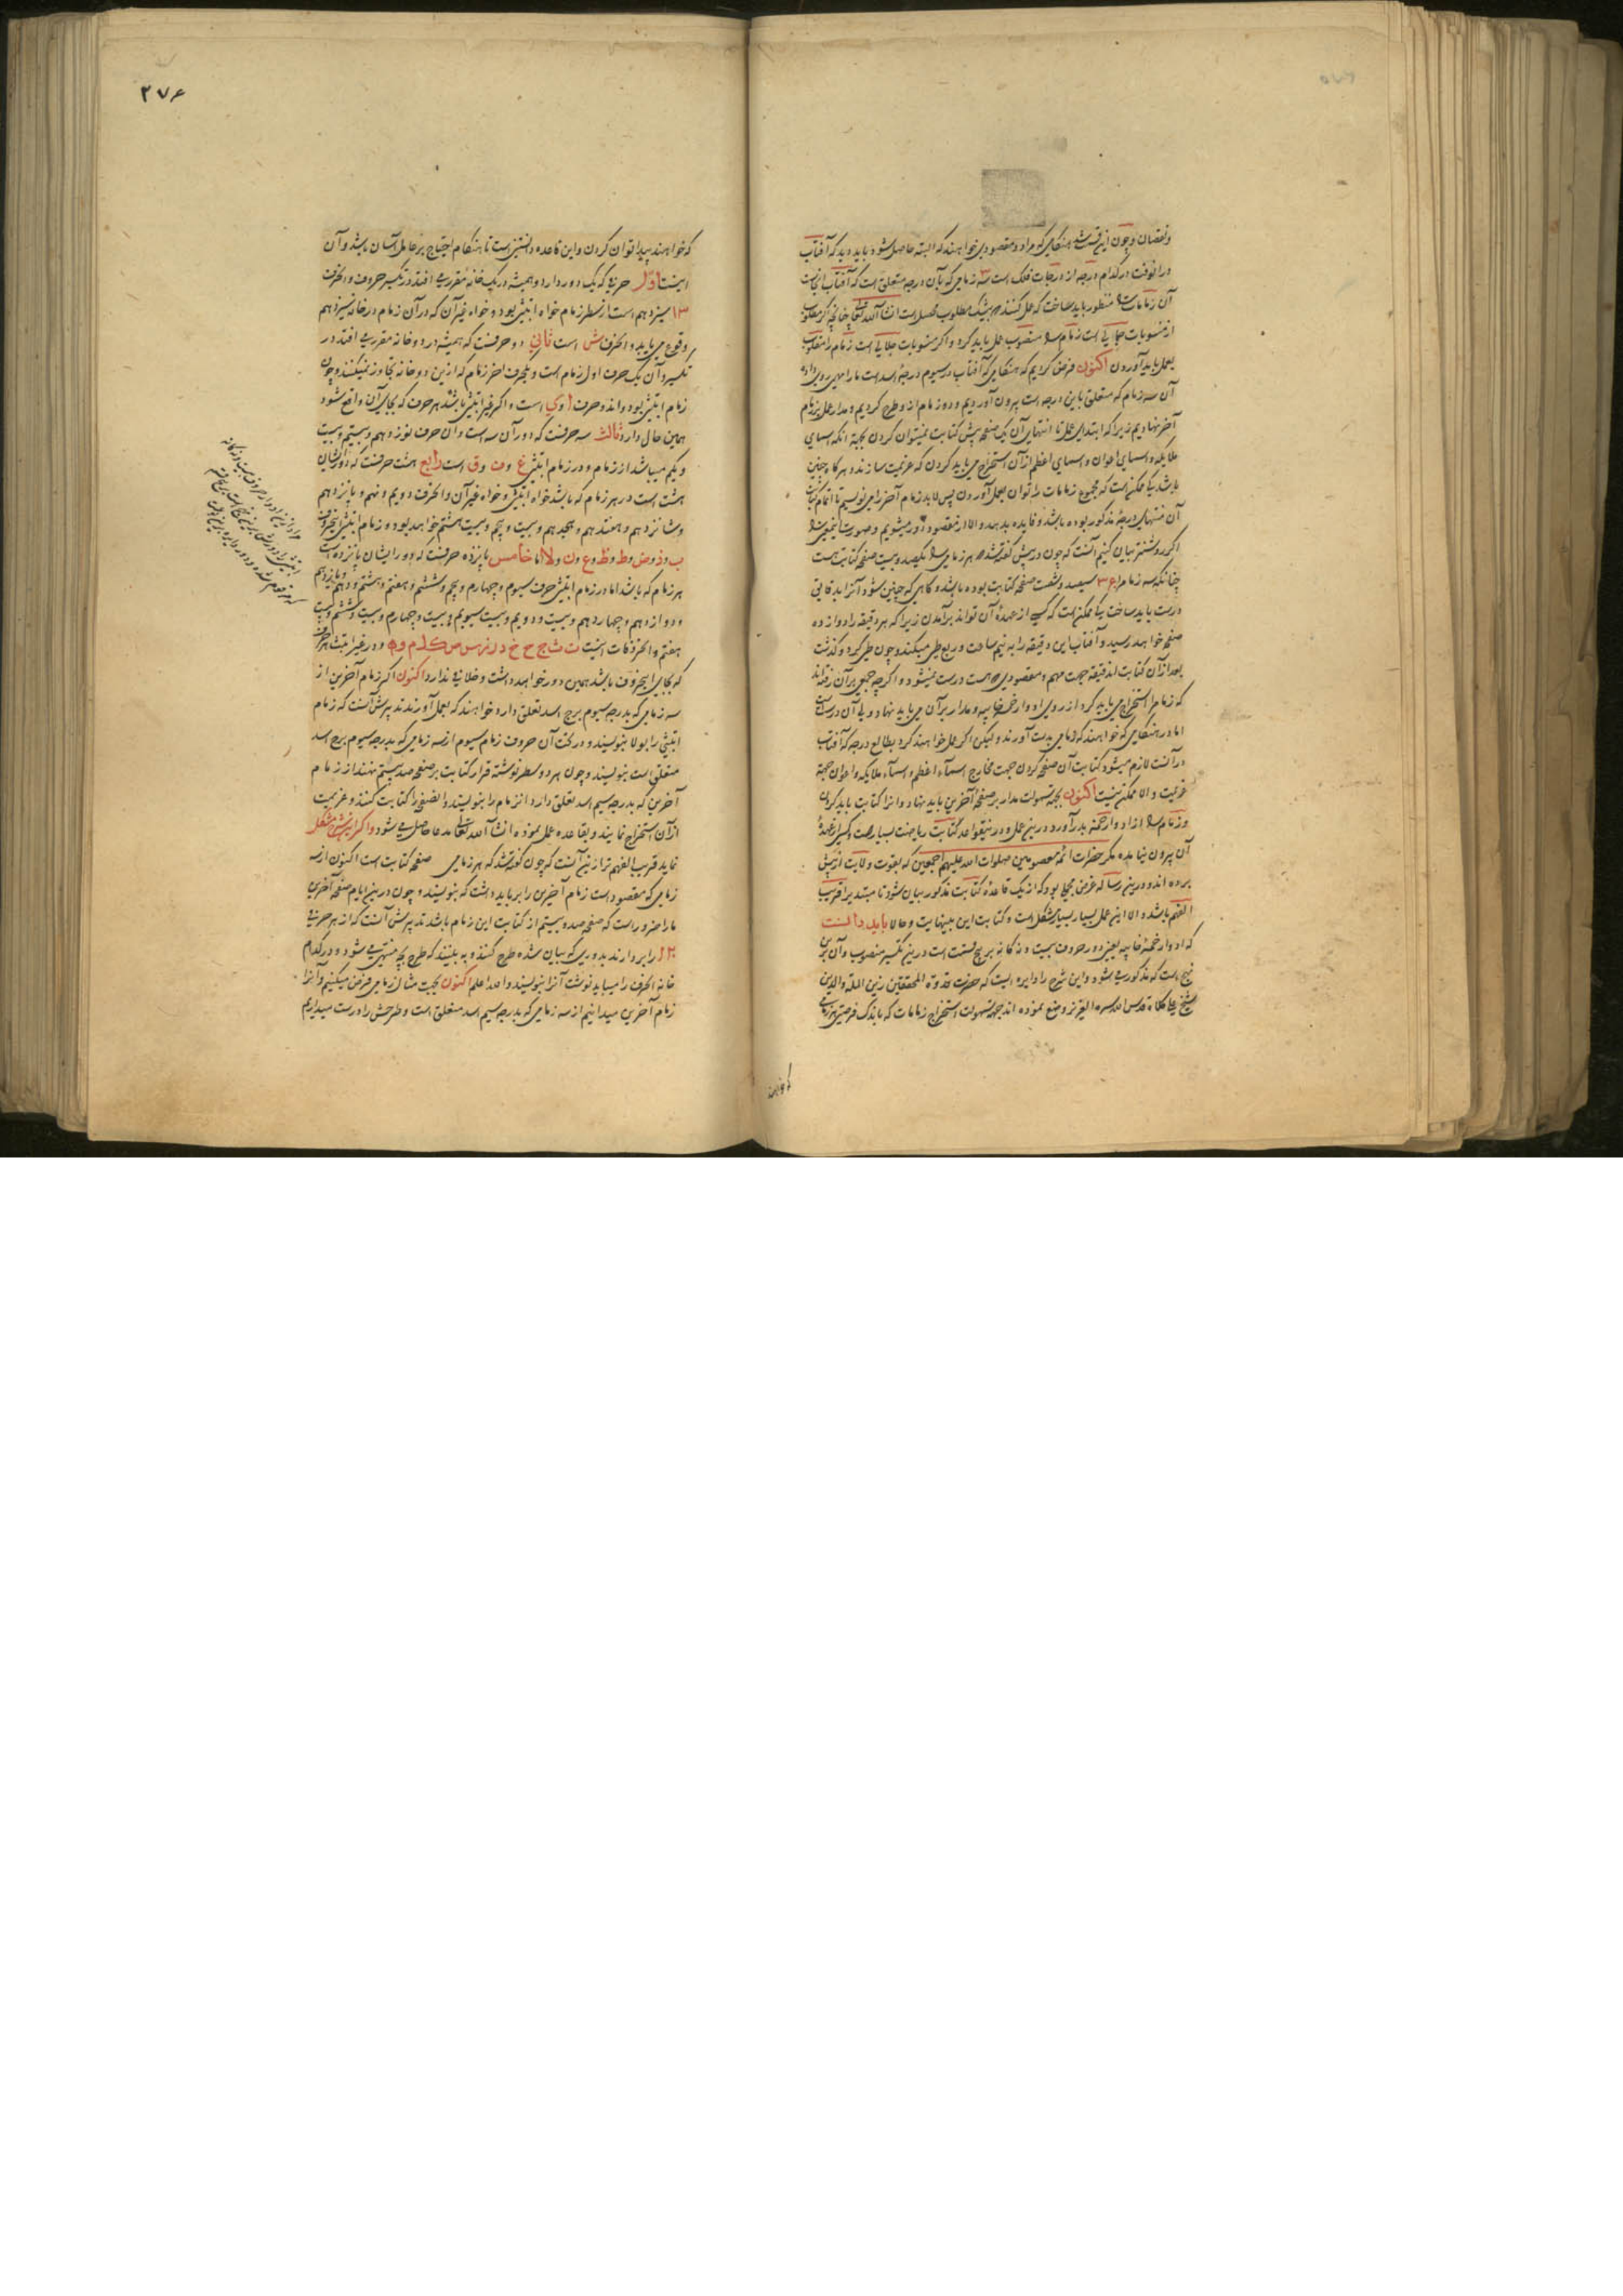 و نقصان و چون این گفته شد هنگامی که مراد و مقصودی خواهند که البته حاصل شود باید دید که آفتاب
در آنوقت در کدام درجه از درجات فلک است سه زمامی که بآن درجه متعلق است که آفتاب آنجاست
آن زمامات را منظور باید ساخت که عمل کنند که بیشک مطلوب محصل است انشاء الله تعالی چنانچه اگر مطلوب
از منسوبات جمالی است زمام را منصوب عمل باید کرد و اگر منسوبات جلالی است زمام را مقلوب
بعمل باید آوردن اکنون فرض کردیم که هنگامی که آفتاب در سیوم درجه اسد است ما را مهمی روی داد
آن سه زمام که متعلق باین درجه است بیرون آوردیم و دو زمام از او طرح کردیم و مدار عمل بر زمام
آخر نهادیم زیرا که ابتدای عمل تا انتهای آن یک صفحه بیش کتابت نمیتوان کردن بجهة آنکه اسمای
ملایکه و اسمای اعوان و اسمای اعظم از آن استخراج می باید کردن که عزیمت سازند و هرگاه چنین
باشد کی ممکن است که مجموع زمامات را توان بعمل آوردن پس لابد زمام آخر را می نویسیم تا اتمام کتابت
آن منتهای درجهٔ مذکور بوده باشد و فایده بدهد و الا از مقصود دور میشویم و صورت
اگر روشنتر بیان کنیم آنست که چون در پیش گفته شد که هر زمامی را یکصد و بیست صفحه کتابت هست
چنانکه سه زمام را ۳۶۰ سیصد و شصت صفحه کتابت بوده باشد و گاهی که چنین شود آنرا بدقایق
درست باید ساخت کی ممکن است که کسی از عهدهٔ آن تواند برآمدن زیرا که هر دقیقه را دوازده
صفحه خواهد رسید و آفتاب این دقیقه را به نیم ساعت و ربع طی میکند و چون طی کرد و گذشت
بعد از آن کتابت آندقیقه جهت مهم و مقصودی که هست درست نمیشود و اگرچه جمعی بر آن رفته اند
که زمام را استخراج می باید کرد از روی ادوار خمسه خاپیه و مدار بر آن می باید نهاد ولی آن درست است
اما در هنگامی که خواهند که زمامی بدست آورند ولیکن اگر عمل خواهند کرد بطالع درجه که آفتاب
در آنست لازم میشود کتابت آن صفحه کردن جهت مخارج اسماء اعظم و اسماء ملایکه و اعوان جهة
عزیمت و الا ممکن نیست اکنون بجهة سهولت مدار بر صفحهٔ آخرین باید نهاد و آنرا کتابت باید کردن
و زمام را از ادوار خمسه بدر آورد و درین عمل و درین قواعد کتابت ریاضت بسیار هست و کسی از عهدهٔ
آن بیرون نیامده مگر حضرات ائمهٔ معصومین صلوات الله علیهم اجمعین که بقوت ولایت از پیش
برده اند و درین رساله غرض مجملی بود که از یک قاعدهٔ کتابت مذکور بیان شود تا مبتدی را قریب
الفهم باشد و الا این عمل بسیار بسیار مشکل است و کتابت این بینهایت و حالا باید دانست
که ادوار خمسهٔ خاپیه یعنی دور حروف بیست و نه گانه بر پنج قسمت است درین تکسیر منصوب و آن برین
نهج است که مذکور می شود و این شرح را دایره ایست که حضرت قدوة المحققین زین الملة والدین
شیخ علی کلاه قدس الله سره العزیز وضع نموده اند جهة سهولت استخراج زمامات که باندک فرصتی هر زمامی
که خواهند
۲۷۶
که خواهند پیدا توان کردن و این قاعده دانستنی است تا هنگام احتیاج بر عامل آسان باشد و آن
اینست اول حرفی که یک دور دارد و همیشه در یک خانه مقرر می افتد در تکسیر حروف و الحرف
۱۳ سیزدهم است از سطر زمام خواه ابتثی بود و خواه غیر آن که در آن زمام در خانه سیزدهم
وقوع می یابد و الحرف ش است ثانی دو حرفست که همیشه در دو خانه مقرر می افتد در
تکسیر و آن یک حرف اول زمام است و یکحرف آخر زمام که ازین دو خانه تجاوز نمیکنند و چون
زمام ابتثی بود و اند و حرف ا و ی است و اگر غیر ابتثی باشد هر حرف که بجای آن واقع شود
همین حال دارد ثالث سه حرفست که دور آن سه است و آن حرف نوزدهم و بیستم و بیست
و یکم میباشد از زمام و در زمام ابتثی غ و ف و ق است رابع هشت حرفست که دورشان
هشت است در هر زمام که باشد خواه ابتثی و خواه غیر آن و الحرف دویم و نهم و پانزدهم
و شانزدهم و هفدهم و هجدهم و بیست و پنجم و بیست و هشتم خواهد بود و در زمام ابتثی
ب و ذ و ض و ط و ظ و ع و ن و لا اما خامس پانزده حرفست که دور ایشان پانزده است
هر زمام که باشد اما در زمام ابتثی حرف سیوم و چهارم و پنجم و ششم و هفتم و هشتم و دهم و یازدهم
و دوازدهم و چهاردهم و بیست و دویم و بیست سیویم و بیست و چهارم و بیست و ششم و بیست
هفتم و الحروفات اینست ت ث ج ح خ د ر ز س ص ک ل م و ه و در غیر ابتث هر حرف
که بجای ایحروف باشد همین دور خواهد داشت و خلافی ندارد اکنون اگر زمام آخرین از
سه زمامی که بدرجه سیوم برج اسد تعلق دارد خواهند که بعمل آورند تدبیرش آنست که زمام
ابتثی را بولا بنویسند و در تحت آن حروف زمام سیوم از سه زمامی که بدرجه سیوم برج اسد
متعلق است بنویسند و چون هر دو سطر نوشته قرار کتابت بر صفحه صد بیستم نهند از زمام
آخرین که بدرجه سیم اسد تعلق دارد از زمام را بنویسند و انصفحه را کتابت کنند و عزیمت
از آن استخراج نمایند و بقاعده عمل نموده انشاء الله تعالی مدعا حاصل می شود و اگر این شرح مشکل
نماید قریب الفهم تر ازین آنست که چون گفته شد که هر زمامی صفحه کتابت است اکنون از سه
زمامی که مقصود است زمام آخرین را بر باید داشت که بنویسند و چون درین ایام صفحه آخرین
ما را ضرور است که صفحه صد و بیستم از کتابت این زمام باشد تدبیرش آنست که از هر حرفی
۱۲۰ را بردارند بدوری که بیان شده طرح کنند و به بینند که طرح بچه منتهی می شود و در کدام
خانه الحرف را میباید نوشت آنرا بنویسند و الله اعلم اکنون بجهت مثال زمامی فرض میکنیم و آنرا
زمام آخرین میدانیم از سه زمامی که بدرجه سیم اسد متعلق است و طرحش را درست میداریم